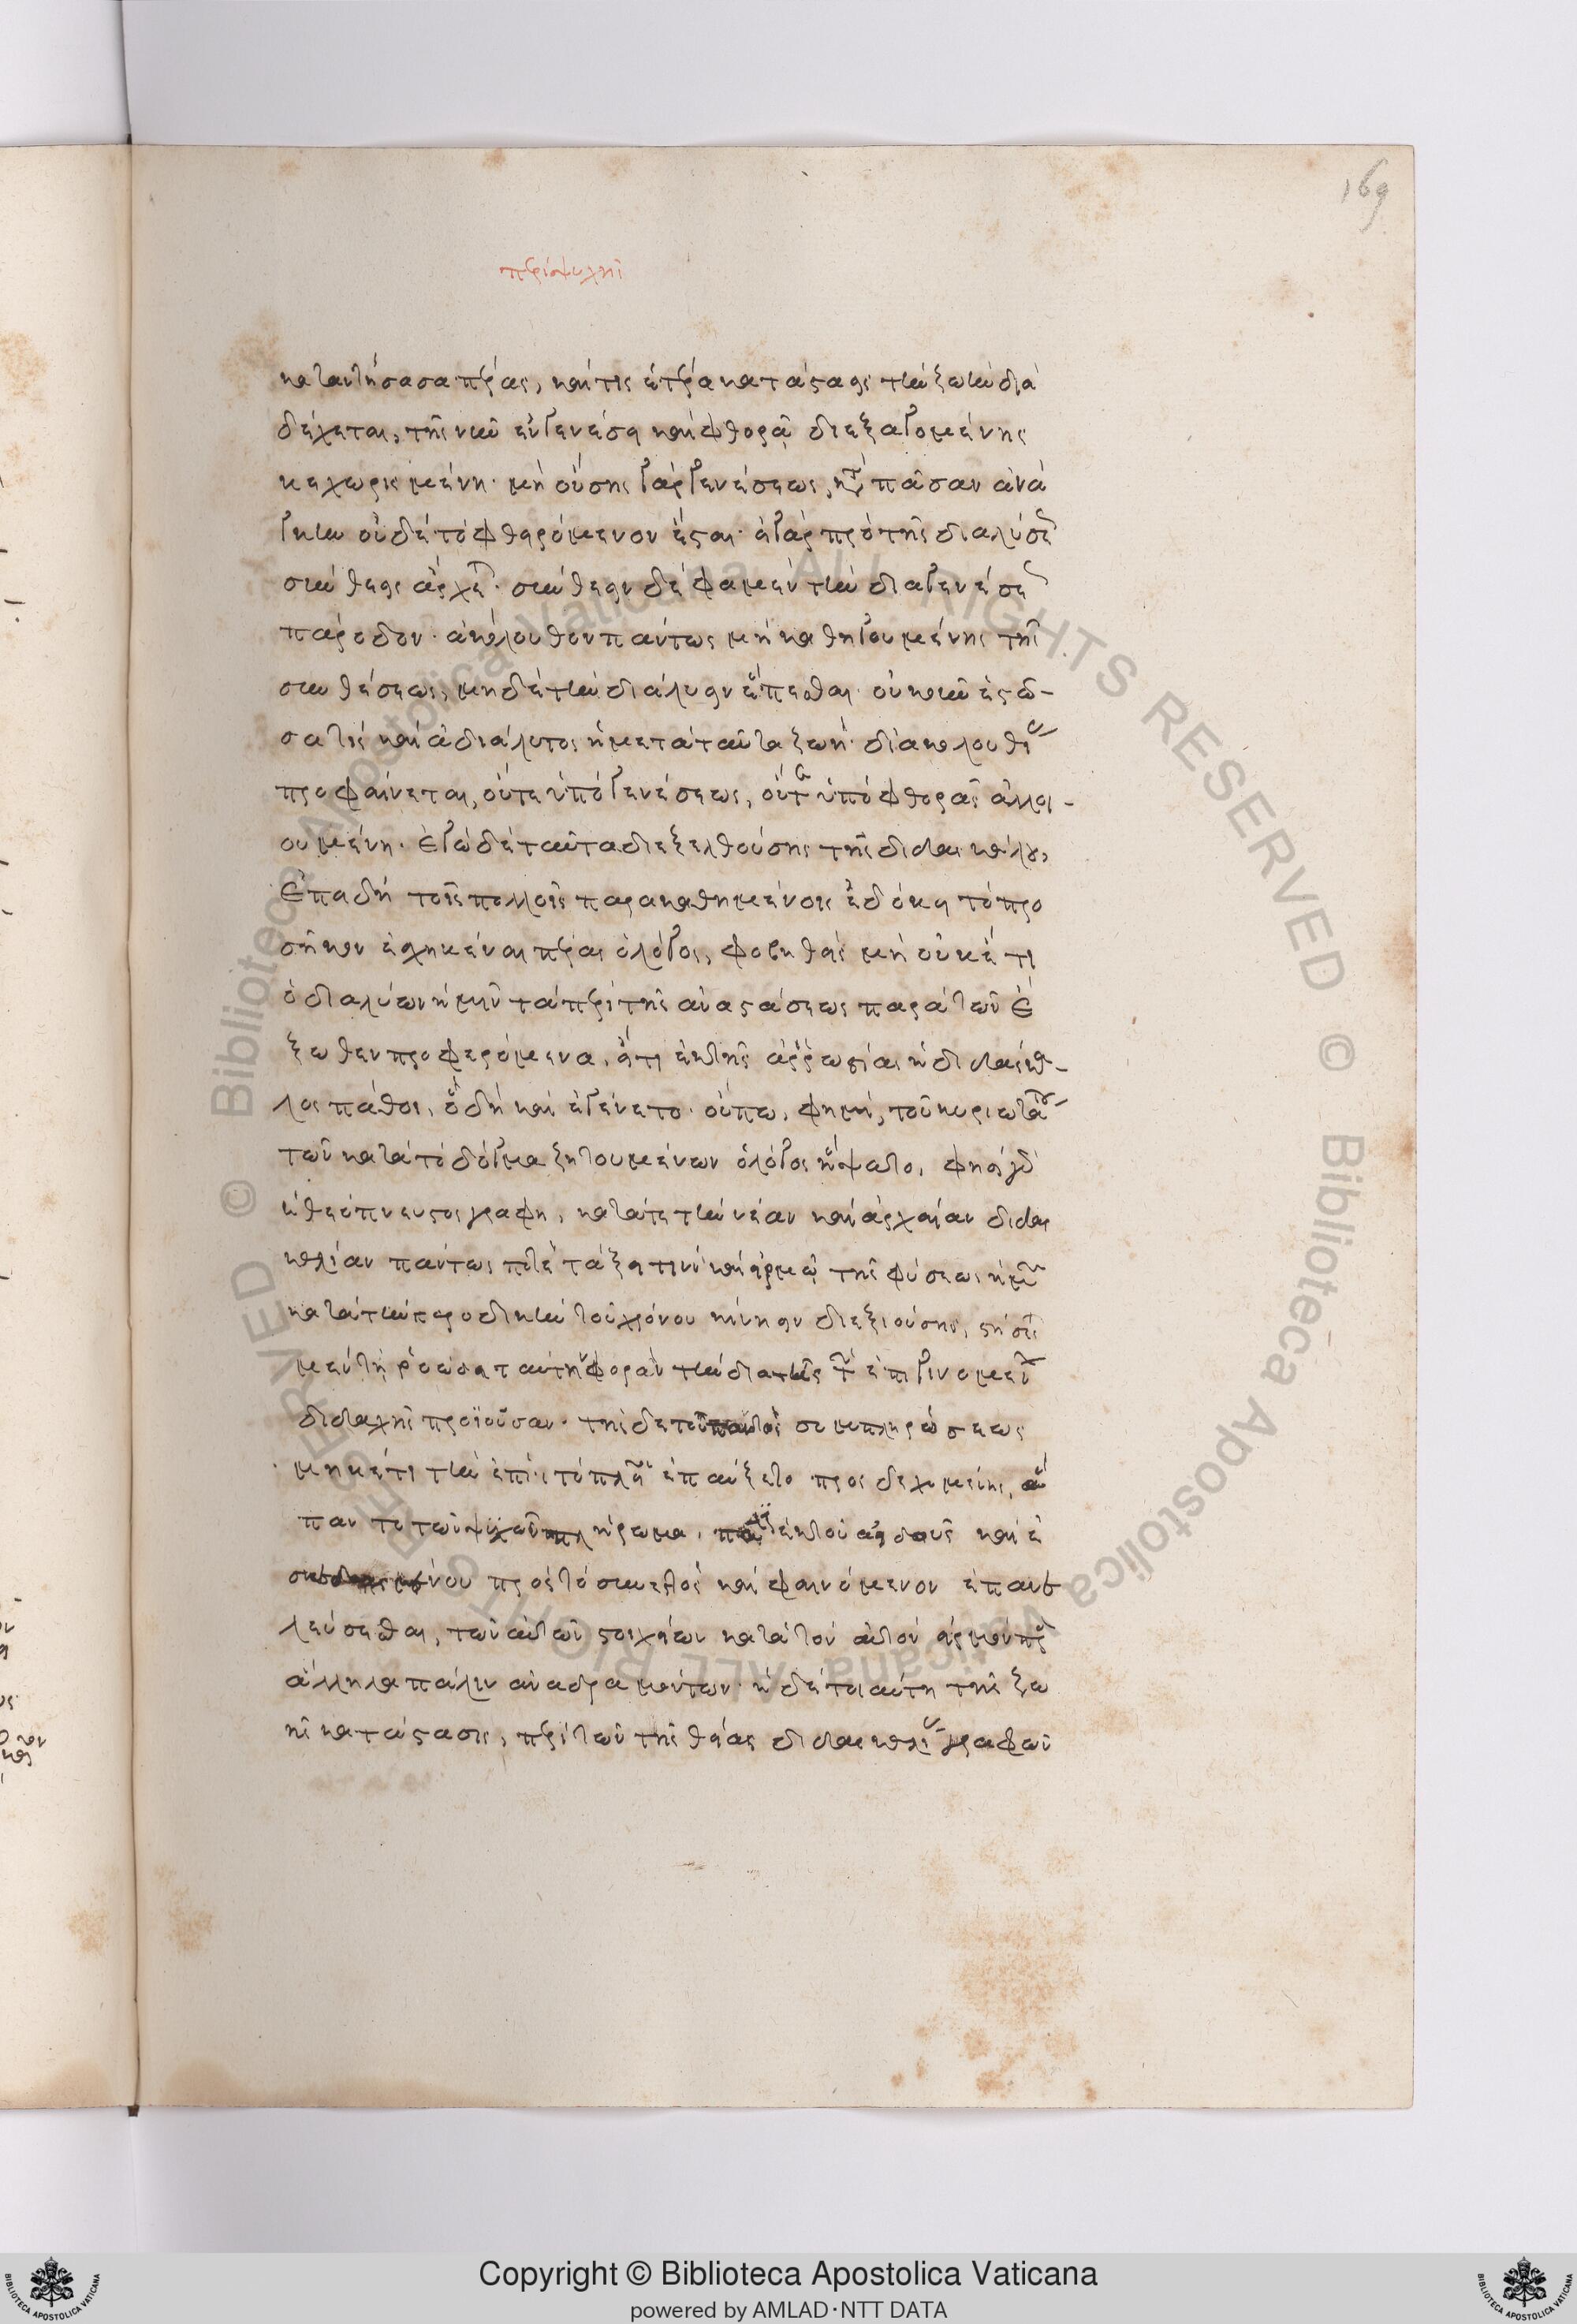 169
περὶ ψυχῆς
καταντήσασα πέρας, καί τις ἑτέρα κατάστασις τὴν ζωὴν δια
δέχεται, τῆς νῦν ἐν γενέσει καὶ φθορᾷ διεξαγομένης
κεχωρισμένη· μὴ οὔσης γὰρ γενέσεως, κατὰ πᾶσαν ἀνά
γκην οὐδὲ τὸ φθειρόμενον ἔσται· εἰ γὰρ πρὸ τῆς διαλύσεως
σύνθεσις ἄρχει· σύνθεσιν δέ φαμεν τὴν διὰ γενέσεως
πάροδον· ἀκόλουθον πάντως μὴ καθηγουμένης τῆς
συνθέσεως, μηδὲ τὴν διάλυσιν ἕπεσθαι· οὐκοῦν ἑστῶ-
σά τις καὶ ἀδιάλυτος ἡ μετὰ ταῦτα ζωὴ δι' ἀκολουθίας
προφαίνεται, οὔτε ὑπὸ γενέσεως, οὔτε ὑπὸ φθορᾶς ἀλλοι-
ουμένη. Ἐγὼ δὲ ταῦτα διεξελθούσης τῆς διδασκάλου,
Ἐπειδὴ τοῖς πολλοῖς παρακαθημένοις ἐδόκει τὸ προ
σῆκον εἰληκέναι πέρας ὁ λόγος, φοβηθεὶς μὴ οὐκέτι
ὁ διαλύων ἡμῖν τὰ περὶ τῆς ἀναστάσεως παρὰ τῶν ἔ
ξωθεν προφερόμενα, εἴ τι ἐκ τῆς ἀρρωστίας ἡ διδάσκα-
λος πάθοι, ὃ δὴ καὶ ἐγένετο· οὔπω, φημί, τοῦ κυριωτάτου
τῶν κατὰ τὸ δόγμα ζητουμένων ὁ λόγος ἥψατο, φησὶ γὰρ
ἡ θεόπνευστος γραφή, κατά τε τὴν νέαν καὶ ἀρχαίαν διδασ
καλίαν πάντως ποτὲ τάξει τινὶ καὶ εἱρμῷ τῆς φύσεως ἡμῶν
κατὰ τὴν παροδικὴν τοῦ χρόνου κίνησιν διεξιούσης, στήσεσθαι
μὲν τὴν ῥοώδη ταύτην φορὰν τὴν διὰ τῆς τῶν ἐπιγινομένων
διδαχῆς προϊοῦσαν· τῆς δὲ τοῦ παντὸς συμπληρώσεως
μηκέτι τὴν ἐπὶ τὸ πλεῖον ἐπαύξησιν προσδεχομένης, ἅ
παν τὸ τῶν ψυχῶν πλήρωμα, πάλιν ἐκ τοῦ ἀειδοῦς καὶ ἐ
σκεδασμένου πρὸς τὸ συνεστὸς καὶ φαινόμενον ἐπανε
λεύσεσθαι, τῶν αὐτῶν στοιχείων κατὰ τὸν αὐτὸν εἱρμὸν πρὸς
ἄλληλα πάλιν ἀναδραμόντων· ἡ δὲ τοιαύτη τῆς ζω
ῆς κατάστασις, περὶ τῶν τῆς θείας διδασκαλίας γραφῶν
Copyright © Biblioteca Apostolica Vaticana
powered by AMLAD·NTT DATA